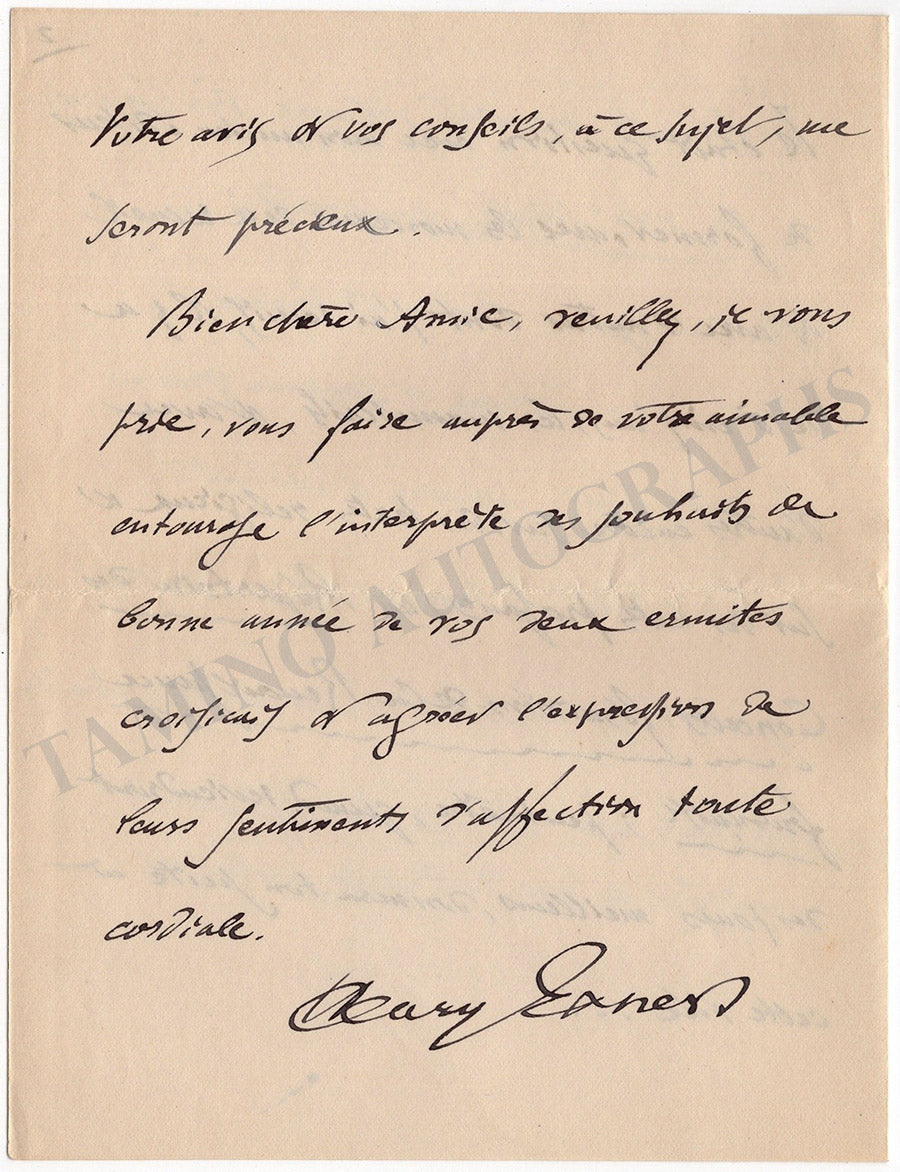 Votre avis et vos conseils, à ce sujet, me
seront précieux.
Bien chère Amie, veuillez, je vous
prie, vous faire auprès de votre aimable
entourage l'interprète des souhaits de
bonne année de vos deux ermites
croissicais et agréer l'expression de
leurs sentiments d'affection toute
cordiale.
TAMINO AUTOGRAPHS